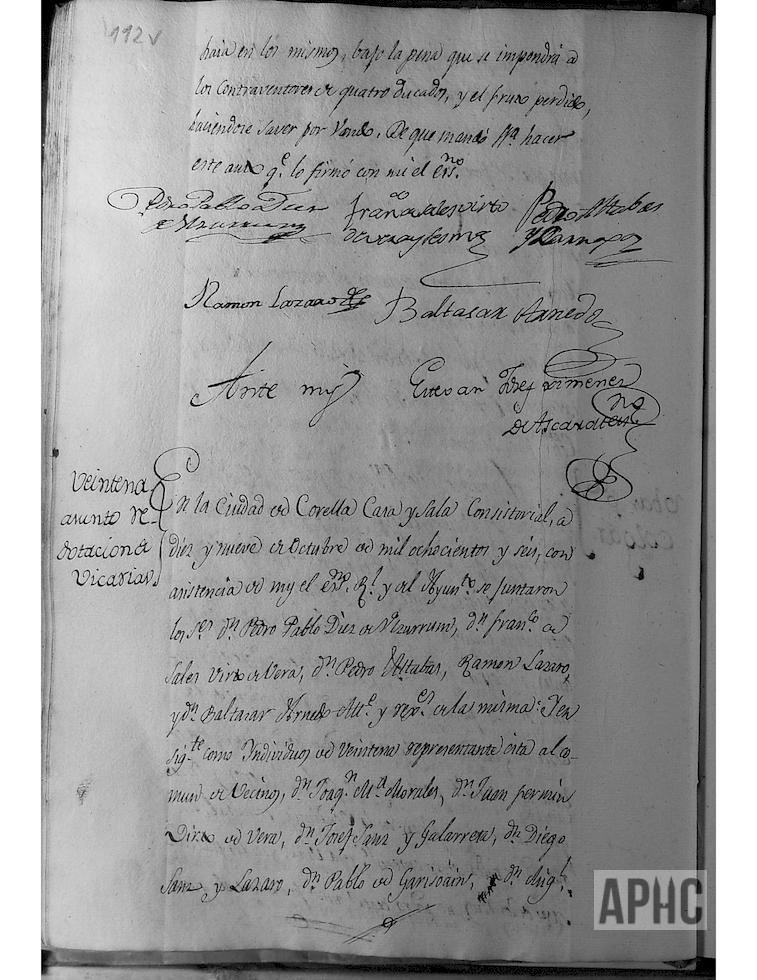 112v
haia en los mismos, bajo la pena que se impondrá a
los Contraventores de quatro ducados, y el fruto perdido,
haciendose saver por Vando. De que mandó hacer
este auto q.e lo firmó con mi el ess.no
Pedro Pablo Diez
de Uzurrum
Fran.co de Sales Virto
de Vera y Lesma
Pedro Astabas
Ramon Lazaro
Baltasar Arnedo
Ante my
Estevan Ximenez
de Ascarate
no
Veintena
asunto
dotacion de
Vicarias
En la Ciudad de Corella Casa y Sala Consistorial, a
diez y nueve de Octubre de mil ochocientos y seis, con
asistencia de my el ess.no R.l y del Ayun.to se juntaron
los S.es d.n Pedro Pablo Diez de Uzurrum, d.n Fran.co de
Sales Virto de Vera, d.n Pedro Astabas, Ramon Lazaro,
y d.n Baltasar Arnedo All.e y rex.es de la misma: Y en
sig.te como Individuos de Veintena representante esta al co-
mun de Vecinos, d.n Joaq.n M.a Morales, d.n Juan Fermin
Virto de Vera, d.n Josef Sanz y Galarreta, d.n Diego
Sanz y Lazaro, d.n Pablo de Garisoain, d.n Ang.l
APHC